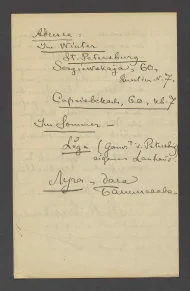 Adresse:
Im Winter
St. Petersburg.
Sergiewskaja, 60,
Quartier N. 7.
Сергіевская, 60, кв. 7
Im Sommer –
Luga (Gouv. St. Petersburg
eigenes Landhaus
Луга – дача